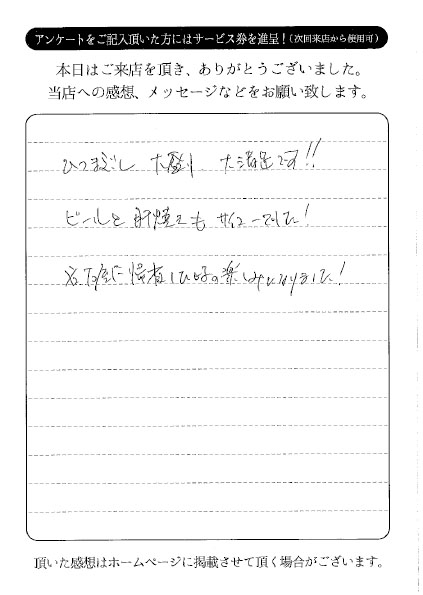 アンケートをご記入頂いた方にはサービス券を進呈！(次回来店から使用可)
本日はご来店を頂き、ありがとうございました。
当店への感想、メッセージなどをお願い致します。
ひつまぶし 大盛り 大満足です!!
ビールと肝焼きもサイコーでした!
名古屋に帰省した時の楽しみになりました!
頂いた感想はホームページに掲載させて頂く場合がございます。